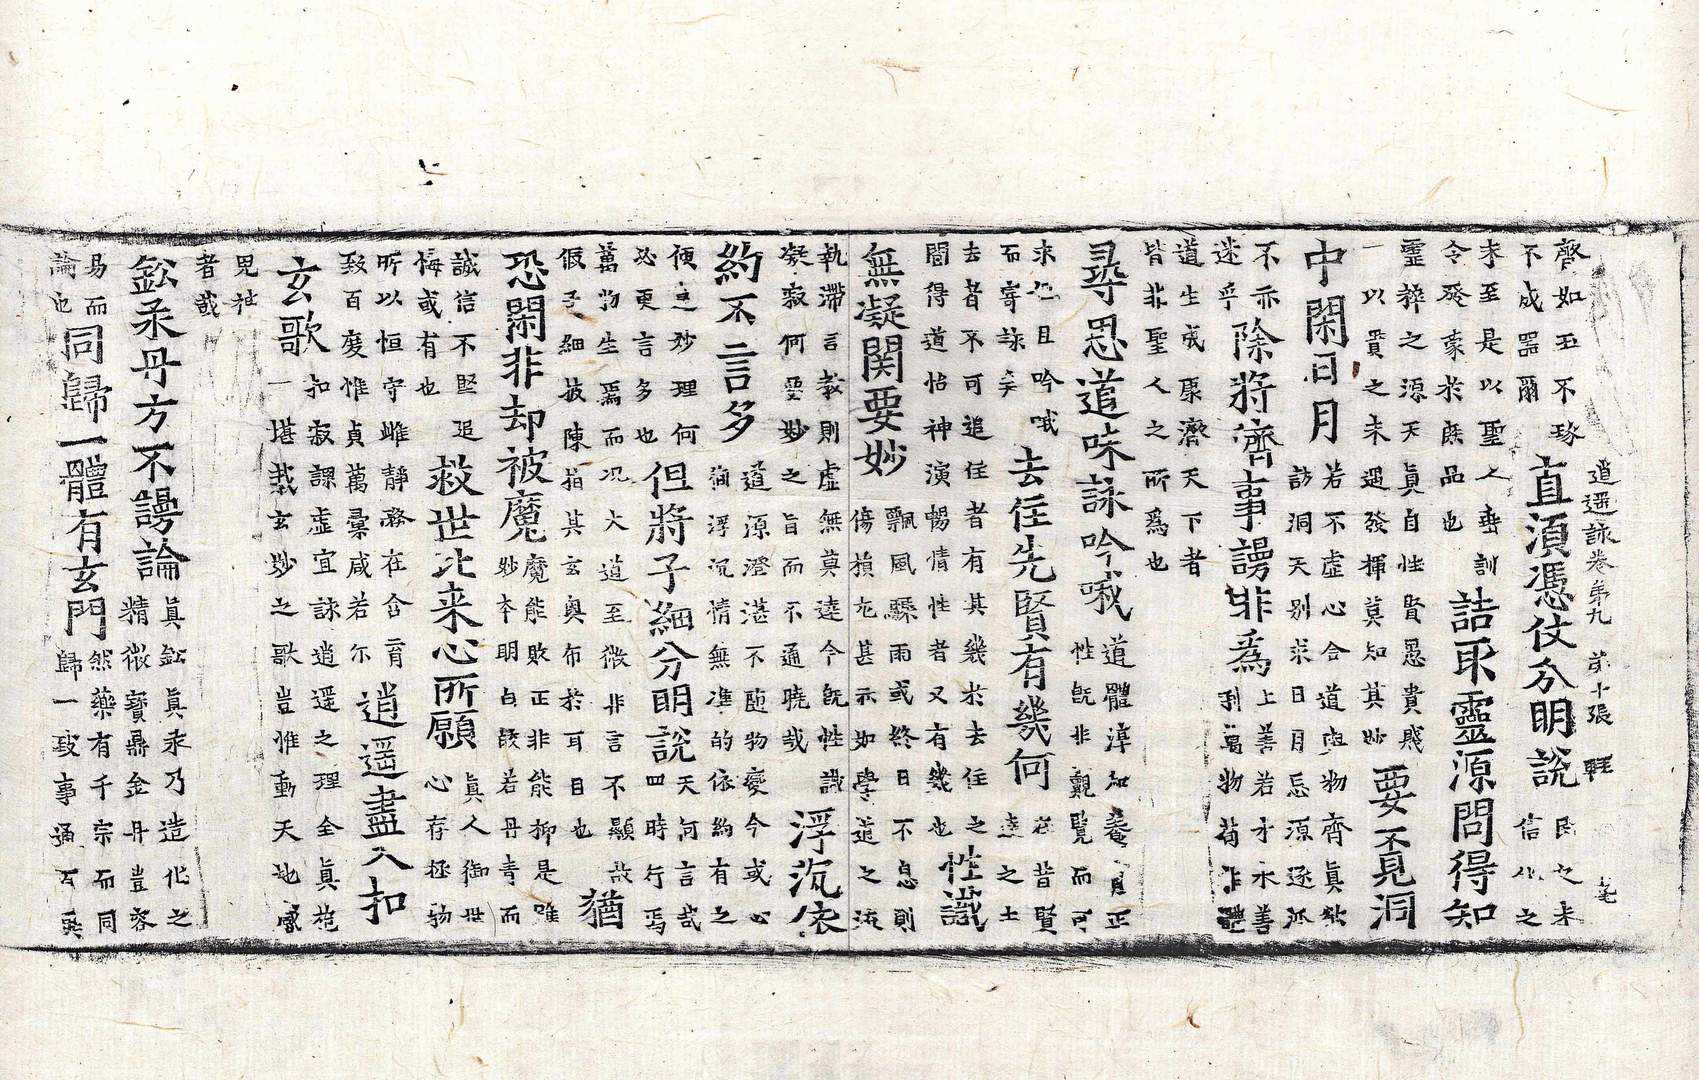 逍遥詠卷第九 第十張
齊如玉不琢
不成器爾
直須憑仗分明說
民之未
信化之
未至是以聖人垂訓
令發蒙於庶品也
詰取靈源問得知
靈粹之源天眞自性賢愚貴賤
一以貫之未遇發揮莫知其妙
要不見洞
中閑日月
若不虛心合道與物齊眞欲
訪洞天別求日月忘源逐派
不亦
迷乎
除將濟事謾非爲
上善若才水善
利萬物苟非禮
道生成康濟天下者
皆非聖人之所爲也
尋思道味詠吟哦
道體淳和養育正
性旣非觀覽而可
求但且吟哦
而寄詠矣
去住先賢有幾何
往昔賢
達之士
去者不可追住者有其幾於去住之
間得道怡神演暢情性者又有幾也
性識
無凝關要妙
飄風驟雨或終日不息則
傷損尤甚亦如學道之流
執滯言教則虛無莫達今旣性識
凝寂何要妙之旨而不通曉哉
浮沉依
約不言多
道源澄湛不隨物變今或心
浮沉情無准的依約有之
便達妙理何
必更言多也
但將子細分明說
天何言哉
四時行焉
萬物生焉而況大道至微非言不顯故
假子細披陳指其玄奧布於耳目也
猶
恐閑非却被魔
魔能敗正非能抑是雖
妙本明白故若丹青而
誠信不堅退
悔或有也
救世比来心所願
眞人御世
心存拯物
所以恒守雌靜務在含育
致百度惟貞萬彙咸若尒
逍遥盡入扣
玄歌
扣寂課虛宜詠逍遥之理全眞抱
一堪哉玄妙之歌豈惟動天地感
鬼神
者哉
鈆汞丹方不謾論
眞鈆眞汞乃造化之
精微寶鼎金丹豈容
易而
論也
同歸一體有玄門
然藥有千宗而同
歸一致事通百